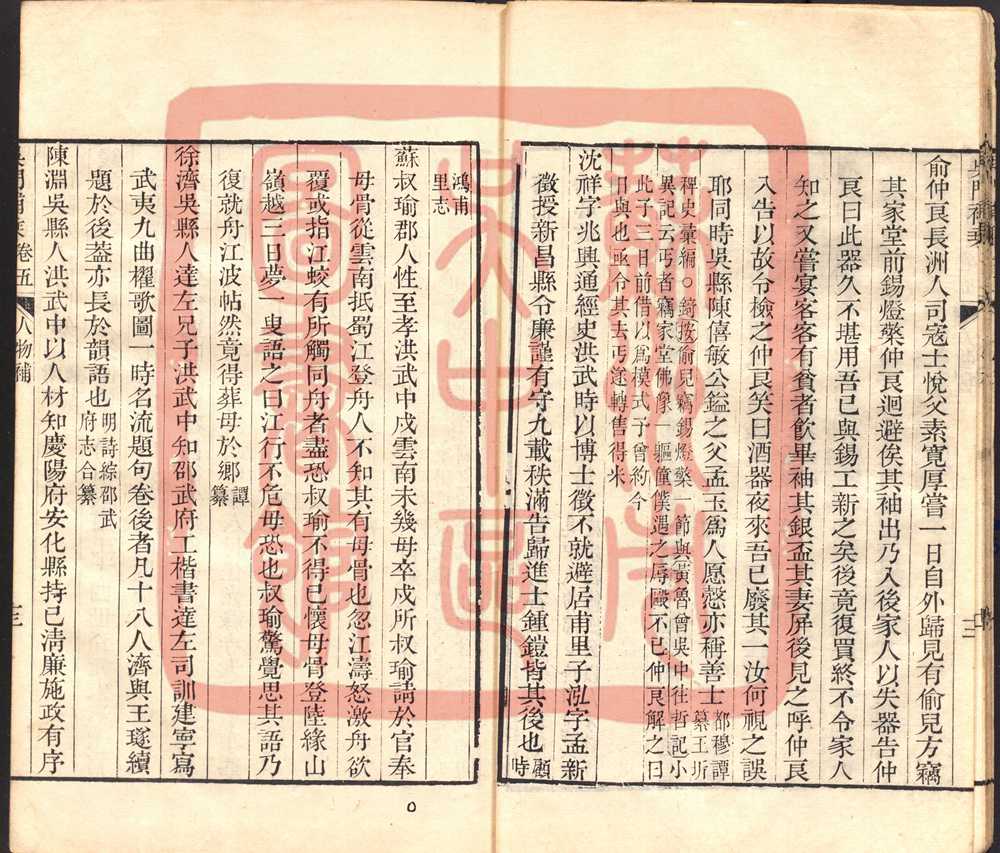 俞仲良長洲人司寇士悅父素寬厚嘗一日自外歸見有偷兒方竊
其家堂前錫燈檠仲良迴避俟其袖出乃入後家人以失器告仲
良曰此器久不堪用吾已與錫工新之矣後竟復買終不令家人
知之又嘗宴客客有貧者飮畢袖其銀盃其妻屏後見之呼仲良
入告以故令檢之仲良笑曰酒器夜來吾已廢其一汝何視之誤
耶同時吳縣陳僖敏公鎰之父孟玉爲人愿慤亦稱善士
都穆譚
纂王圻
稗史彙編○錡按偷兒竊錫燈檠一節與黃魯曾吳中往哲記小
異記云丐者竊家堂佛像一軀僮僕遇之辱毆不已仲良解之曰
此子三日前借以爲模式予曾約今
日與也亟令其去丐遂轉售得米
沈祥字兆興通經史洪武時以博士徵不就避居甫里子泓字孟新
徵授新昌縣令廉謹有守九載秩滿告歸進士鍾鎧皆其後也
顧
時
鴻甫
里志
蘇叔瑜郡人性至孝洪武中戍雲南未幾母卒戍所叔瑜請於官奉
母骨從雲南抵蜀江登舟人不知其有母骨也忽江濤怒激舟欲
覆或指江蛟有所觸同舟者盡恐叔瑜不得已懷母骨登陸緣山
嶺越三日夢一叟語之曰江行不危毋恐也叔瑜驚覺思其語乃
復就舟江波帖然竟得葬母於鄉
譚
纂
徐濟吳縣人達左兄子洪武中知邵武府工楷書達左司訓建寧寫
武夷九曲櫂歌圖一時名流題句卷後者凡十八人濟與王璲續
題於後蓋亦長於韻語也
明詩綜邵武
府志合纂
陳淵吳縣人洪武中以人材知慶陽府安化縣持己淸廉施政有序
卷五
人物補
三